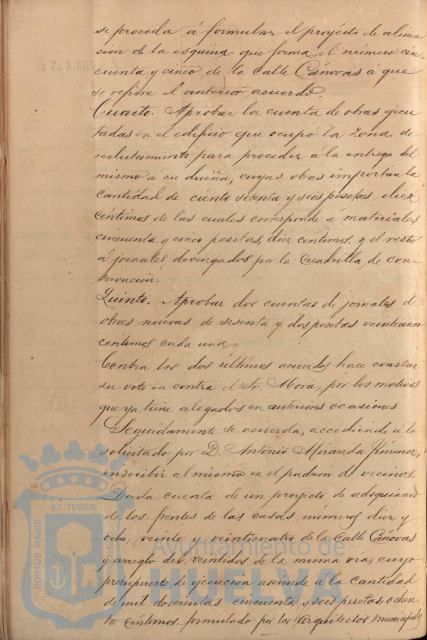 se proceda á formular el proyecto de alinea
cion de la esquina que forma el número cin
cuenta y cinco de la calle Cánovas a que
se refiere el anterior acuerdo.
Cuarto. Aprobar la cuenta de obras ejecu
tadas en el edificio que ocupó la zona de
reclutamiento para proceder á la entrega del
mismo a su dueña, cuyas obras importan la
cantidad de ciento setenta y seis pesetas, diez
céntimos de las cuales corresponde a materiales
cincuenta y cinco pesetas, diez centimos, y el resto
a jornales devengados por la Cuadrilla de con
servacion.
Quinto. Aprobar dos cuentas de jornales de
obras nuevas de sesenta y dos pesetas veinticinco
centimos cada una.
Contra los dos últimos acuerdos hace constar
su voto en contra el Sr. Mora, por los motivos
que ya tiene alegados en anteriores ocasiones
Seguidamente se acuerda, accediendo a lo
solicitado por D. Antonio Miranda Jimenez,
inscribir al mismo en el padrón de vecinos.
Dada cuenta de un proyecto de adoquinado
de los frentes de las casas números diez y
ocho, veinte y veinticuatro de la Calle Cánovas
y arreglo del veintidos de la misma via, cuyo
presupuesto de ejecucion asciende á la cantidad
de mil doscientas cincuenta y seis pesetas, ochen
ta centimos formulado por los Arquitectos municipales
PORTUS MARIS ET TERRAE
Ayuntamiento de
HUELVA